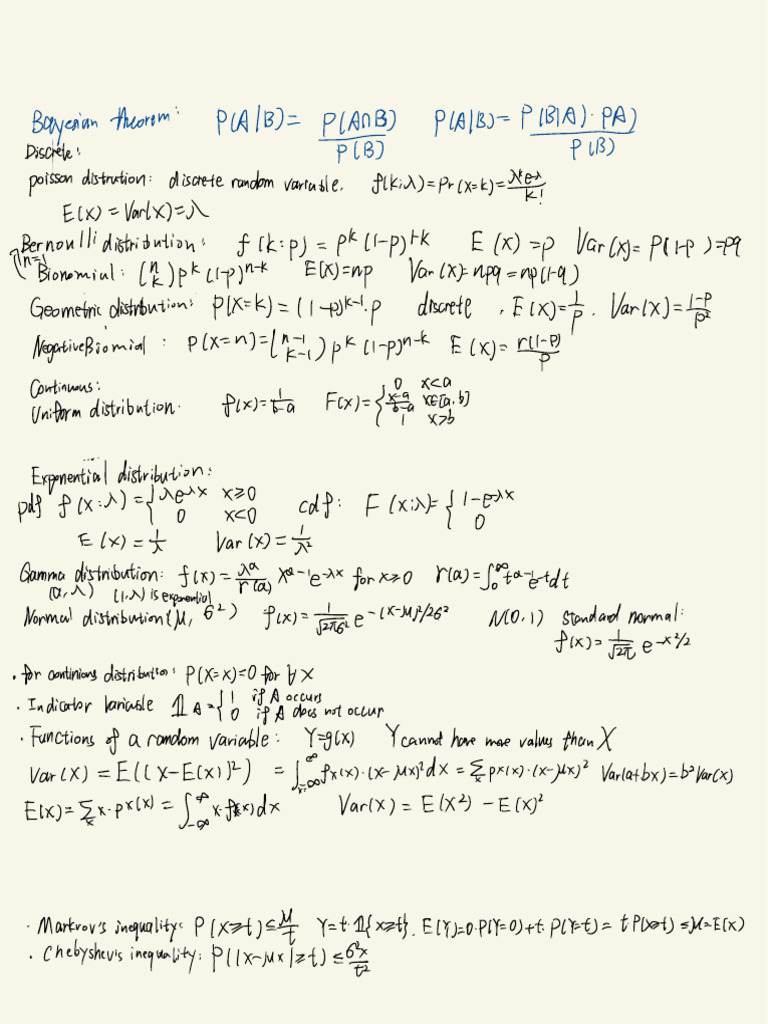 Bayesian theorem: P(A|B) = P(A∩B)/P(B) P(A|B) = P(B|A)·P(A)/P(B)
Discrete:
poisson distrution: discrete random variable. f(k;λ) = Pr(X=k) = λ^k e^-λ / k!
E(X) = Var(X) = λ
Bernoulli distribution: f(k:p) = p^k (1-p)^1-k E(X) = p Var(X) = P(1-p) = pq
(n=1
Bionomiul: (n k) p^k (1-p)^n-k E(X) = np Var(X) = npq = np(1-q)
Geometric distribution: P(X=k) = (1-p)^k-1 · p discrete , E(X) = 1/p . Var(X) = 1-p/p²
Negative Biomial : P(X=n) = (n-1 k-1) p^k (1-p)^n-k E(X) = r(1-p)/p
Continuous:
Uniform distribution. f(x) = 1/b-a F(x) = { 0 x<a
x-a/b-a x∈[a,b]
1 x>b
Exponential distribution:
pdf f(x:λ) = { λe^-λx x≥0 cdf: F(x:λ) = { 1-e^-λx
0 x<0 0
E(X) = 1/λ Var(X) = 1/λ²
Gamma distribution: f(x) = λ^a/Γ(a) x^a-1 e^-λx for x≥0 Γ(a) = ∫₀^∞ t^a-1 e^-t dt
(a,λ) (1,λ) is exponential
Normal distribution(μ, σ²) f(x) = 1/√2πσ² e^-(x-μ)²/2σ² N(0,1) standard normal:
f(x) = 1/√2π e^-x²/2
· for continions distribution: P(X=x)=0 for ∀x
· Indicator Variable 𝟙A = { 1 if A occurs
0 if A does not occur
· Functions of a random variable: Y=g(x) Y cannot have more values than X
Var(X) = E((X-E(X))²) = ∫_-∞^∞ fx(x)·(x-μx)² dx = Σ_x px(x)·(x-μx)² Var(a+bx) = b² Var(x)
E(X) = Σ_x x·px(x) = ∫_-∞^∞ x·fx(x) dx Var(X) = E(X²) - E(X)²
· Markrov's inequality: P(X≥t) ≤ μ/t Y=t·𝟙{x≥t}. E(Y)=0·P(Y=0)+t·P(Y=t) = t P(X≥t) ≤ μ = E(X)
· Chebyshev's inequality: P(|X-μx|≥t) ≤ σ²x/t²